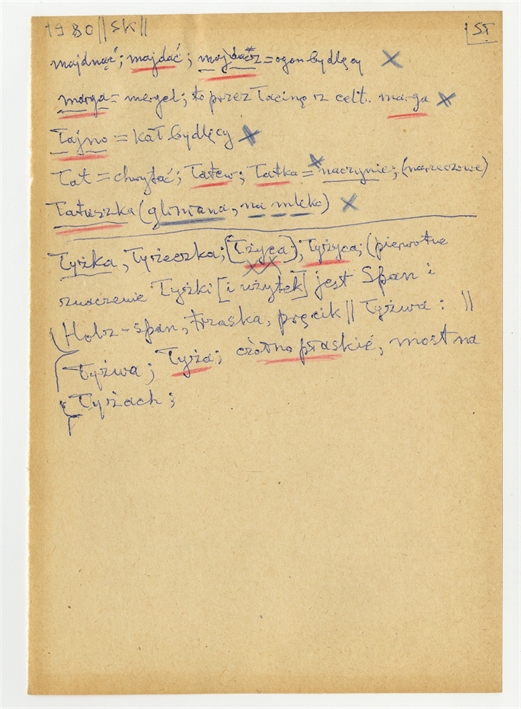 1980 || SK ||
ST
majdnąć; majdać; majdacz = ogon bydlęcy X
marga = mergel; to przez łacinę z celt. marga X
łajno = kał bydlęcy X
łat = chwytać; łatew; łatka = X naczynie; (narzeczowe)
łatuszka (gliniana, na mleko) X
łyżka, łyżeczka; [łżyca], łyżyca; (pierwotne
znaczenie łyżki [i użytek] jest Span i
(Holz-span, trzaska, pręcik || łyżwa: ||
łyżwa; łyża; czółno płaskie, most na
łyżach;